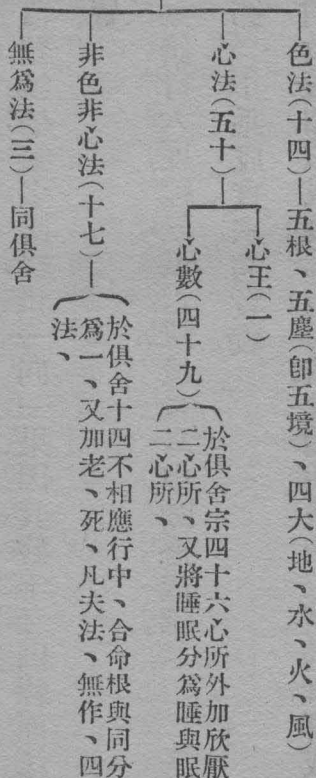 色法(十四)—五根、五塵(卽五境)、四大(地、水、火、風)
心法(五十)
心王(一)
心數(四十九)
於俱舍宗四十六心所外加欣厭
二心所、又將睡眠分爲睡與眠
二心所、
非色非心法(十七)
於俱舍十四不相應行中、合命根與同分
爲一、又加老、死、凡夫法、無作、四
法、
無爲法(三)—同俱舍